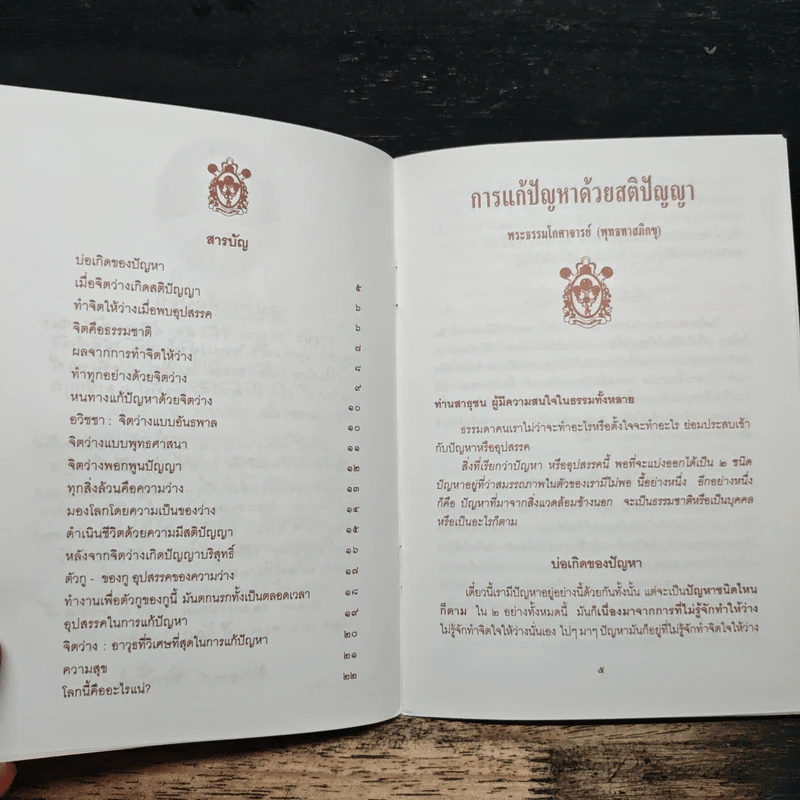 สารบัญ
บ่อเกิดของปัญหา ๕
เมื่อจิตว่างเกิดสติปัญญา ๖
ทำจิตให้ว่างเมื่อพบอุปสรรค ๖
จิตคือธรรมชาติ ๗
ผลจากการทำจิตให้ว่าง ๘
ทำทุกอย่างด้วยจิตว่าง ๙
หนทางแก้ปัญหาด้วยจิตว่าง ๑๐
อวิชชา : จิตว่างแบบอันธพาล ๑๐
จิตว่างแบบพุทธศาสนา ๑๑
จิตว่างพอกพูนปัญญา ๑๒
ทุกสิ่งล้วนคือความว่าง ๑๓
มองโลกโดยความเป็นของว่าง ๑๔
ดำเนินชีวิตด้วยความมีสติปัญญา ๑๕
หลังจากจิตว่างเกิดปัญญาบริสุทธิ์ ๑๖
ตัวกู - ของกู อุปสรรคของความว่าง ๑๗
ทำงานเพื่อตัวกูของกูนี้ มันตกนรกทั้งเป็นตลอดเวลา ๑๘
อุปสรรคในการแก้ปัญหา ๑๙
จิตว่าง : อาวุธที่วิเศษที่สุดในการแก้ปัญหา ๒๐
ความสุข ๒๑
โลกนี้คืออะไรแน่? ๒๒
การแก้ปัญหาด้วยสติปัญญา
พระธรรมโกศาจารย์ (พุทธทาสภิกขุ)
ท่านสาธุชน ผู้มีความสนใจในธรรมทั้งหลาย
ธรรมดาคนเราไม่ว่าจะทำอะไรหรือตั้งใจจะทำอะไร ย่อมประสบเข้า
กับปัญหาหรืออุปสรรค
สิ่งที่เรียกว่าปัญหา หรืออุปสรรคนี้ พอที่จะแบ่งออกได้เป็น ๒ ชนิด
ปัญหาอยู่ที่ว่าสมรรถภาพในตัวของเรามีไม่พอ นี้อย่างหนึ่ง อีกอย่างหนึ่ง
ก็คือ ปัญหาที่มาจากสิ่งแวดล้อมข้างนอก จะเป็นธรรมชาติหรือเป็นบุคคล
หรือเป็นอะไรก็ตาม
บ่อเกิดของปัญหา
เดี๋ยวนี้เรามีปัญหาอยู่อย่างนี้ด้วยกันทั้งนั้น แต่จะเป็นปัญหาชนิดไหน
ก็ตาม ใน ๒ อย่างทั้งหมดนี้ มันก็เนื่องมาจากการที่ไม่รู้จักทำให้ว่าง
ไม่รู้จักทำจิตใจให้ว่างนั่นเอง ไปๆ มาๆ ปัญหามันก็อยู่ที่ไม่รู้จักทำจิตใจให้ว่าง
๕